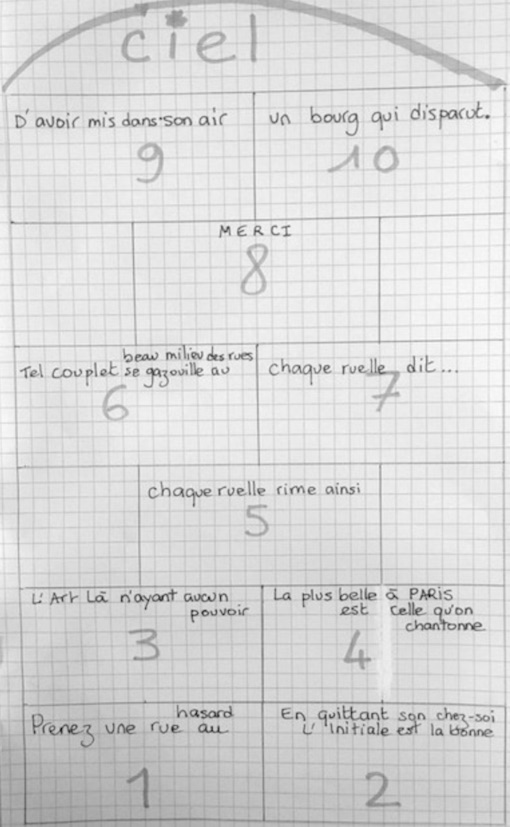 ciel
D'avoir mis dans son air
9
un bourg qui disparut.
10
MERCI
8
beau milieu des rues
Tel couplet se gazouille au
6
chaque ruelle dit...
7
chaque ruelle rime ainsi
5
L'Art Là n'ayant aucun
pouvoir
3
La plus belle à PARIS
est celle qu'on
chantonne
4
hasard
Prenez une rue au
1
En quittant son chez-soi
L'Initiale est la bonne
2